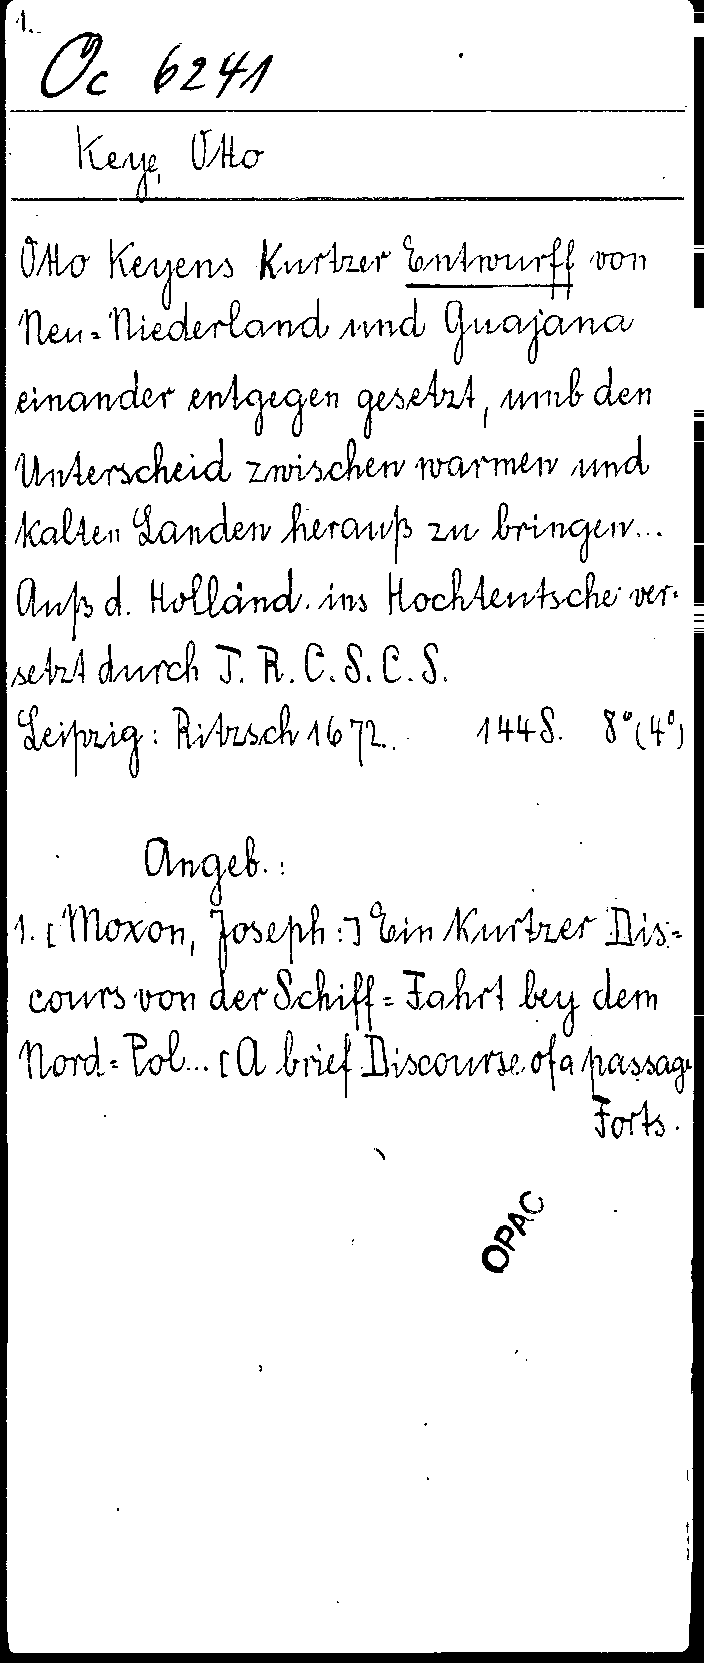 1.
Oc 6241
Keye, Otto
Otto Keyens Kurtzer Entwurff von
Neu=Niederland und Guajana
einander entgegen gesetzt, umb den
Unterscheid zwischen warmen und
kalten Landen herauß zu bringen...
Auß d. Holländ. ins Hochteutsche ver-
setzt durch T. R. C. S. C. S.
Leipzig: Ritzsch 1672. 144 S. 8° (4°)
Angeb.:
1. [Moxon, Joseph:] Ein Kurtzer Dis=
cours von der Schiff=Fahrt bey dem
Nord=Pol... [A brief Discourse of a passage
Forts.
OPAC